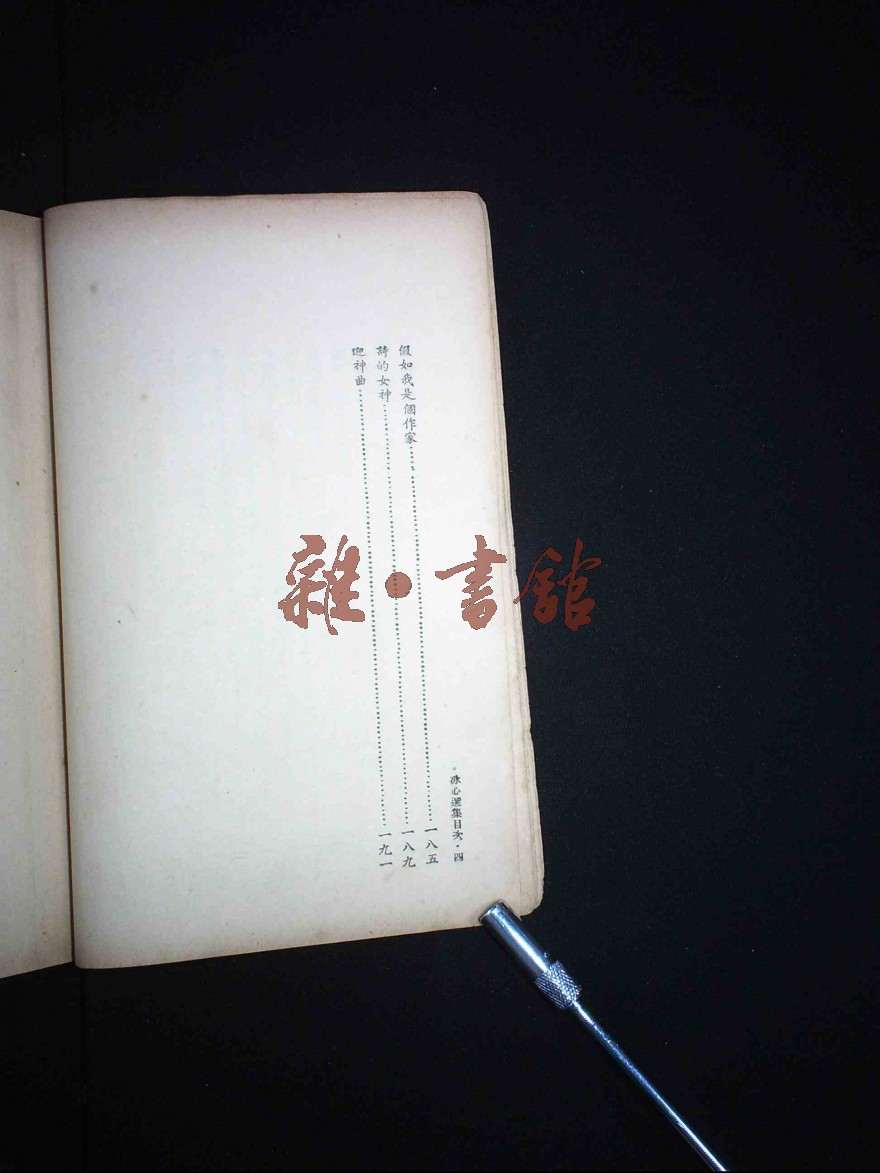 假如我是個作家……一八五
詩的女神……一八九
迎神曲……一九一
。冰心選集目次·四
雜·書館